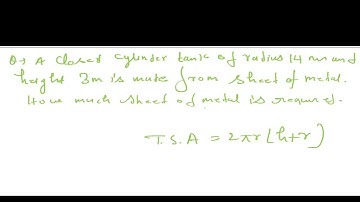 Q→ A closed cylinder tank of radius 14 m and
height 3m is made from sheet of metal.
How much sheet of metal is required.
T.S.A = 2πr(h+r)